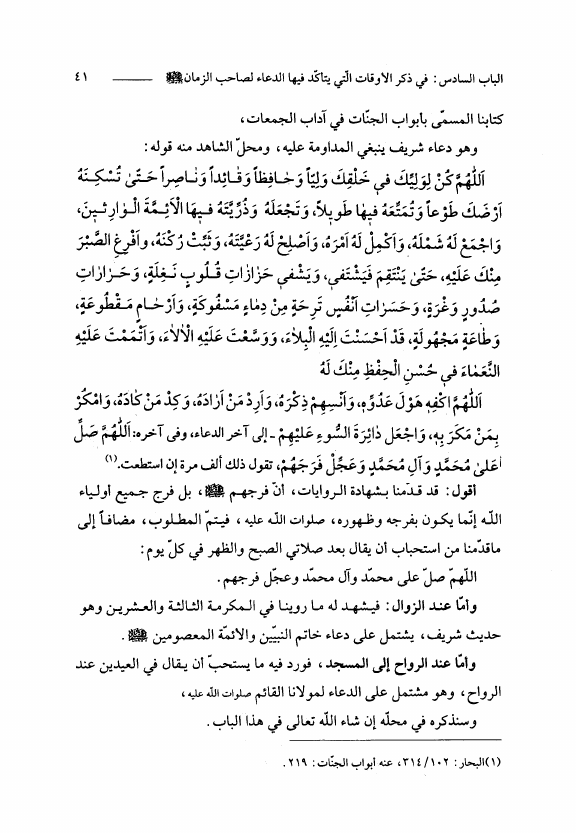 الباب السادس: في ذكر الأوقات الّتي يتاكّد فيها الدعاء لصاحب الزمان ﷺ ــــــــــ ٤١
كتابنا المسمّى بأبواب الجنّات في آداب الجمعات،
وهو دعاء شريف ينبغي المداومة عليه، ومحلّ الشاهد منه قوله:
اَللّٰهُمَّ كُنْ لِوَلِيِّكَ في خَلْقِكَ وَلِيّاً وَحٰافِظاً وَقٰائِداً وَنٰاصِراً حَتّىٰ تُسْكِنَهُ
اَرْضَكَ طَوْعاً وَتُمَتِّعَهُ فيهٰا طَويلاً، وَتَجْعَلَهُ وَذُرِّيَّتَهُ فيهَا الْاَئِمَّةَ الْوٰارِثينَ،
وَاجْمَعْ لَهُ شَمْلَهُ، وَاَكْمِلْ لَهُ اَمْرَهُ، وَاَصْلِحْ لَهُ رَعِيَّتَهُ، وَثَبِّتْ رُكْنَهُ، وَاَفْرِغِ الصَّبْرَ
مِنْكَ عَلَيْهِ، حَتّىٰ يَنْتَقِمَ فَيَشْتَفي، وَيَشْفي حَزٰازٰاتِ قُلُوبٍ نَغِلَةٍ، وَحَرٰارٰاتِ
صُدُورٍ وَغْرَةٍ، وَحَسَرٰاتِ اَنْفُسٍ تَرِحَةٍ مِنْ دِمٰاءٍ مَسْفُوكَةٍ، وَاَرْحٰامٍ مَقْطُوعَةٍ،
وَطٰاعَةٍ مَجْهُولَةٍ، قَدْ اَحْسَنْتَ اِلَيْهِ الْبِلاٰءَ، وَوَسَّعْتَ عَلَيْهِ الْآلاٰءَ، وَاَتْمَمْتَ عَلَيْهِ
النَّعْمٰاءَ في حُسْنِ الْحِفْظِ مِنْكَ لَهُ
اَللّٰهُمَّ اكْفِهِ هَوْلَ عَدُوِّهِ، وَاَنْسِهِمْ ذِكْرَهُ، وَاَرِدْ مَنْ اَرٰادَهُ، وَكِدْ مَنْ كٰادَهُ، وَامْكُرْ
بِمَنْ مَكَرَ بِهِ، وَاجْعَلْ دٰائِرَةَ السُّوءِ عَلَيْهِمْ ـ إلى آخر الدعاء، وفي آخره: اَللّٰهُمَّ صَلِّ
عَلىٰ مُحَمَّدٍ وَآلِ مُحَمَّدٍ وَعَجِّلْ فَرَجَهُمْ، تقول ذلك ألف مرة إن استطعت.(١)
أقول: قد قدّمنا بشهادة الروايات، أنّ فرجهم ﷺ، بل فرج جميع أولياء
اللّه إنّما يكون بفرجه وظهوره، صلوات اللّه عليه، فيتمّ المطلوب، مضافاً إلى
ماقدّمنا من استحباب أن يقال بعد صلاتي الصبح والظهر في كلّ يوم:
اللّهمّ صلّ على محمّد وآل محمّد وعجّل فرجهم.
وأمّا عند الزوال: فيشهد له ما روينا في المكرمة الثالثة والعشرين وهو
حديث شريف، يشتمل على دعاء خاتم النبيّين والائمّة المعصومين ﷺ.
وأمّا عند الرواح إلى المسجد، فورد فيه ما يستحبّ أن يقال في العيدين عند
الرواح، وهو مشتمل على الدعاء لمولانا القائم صلوات اللّه عليه،
وسنذكره في محلّه إن شاء اللّه تعالى في هذا الباب.
(١) البحار: ٣١٤/١٠٢، عنه أبواب الجنّات: ٢١٩.